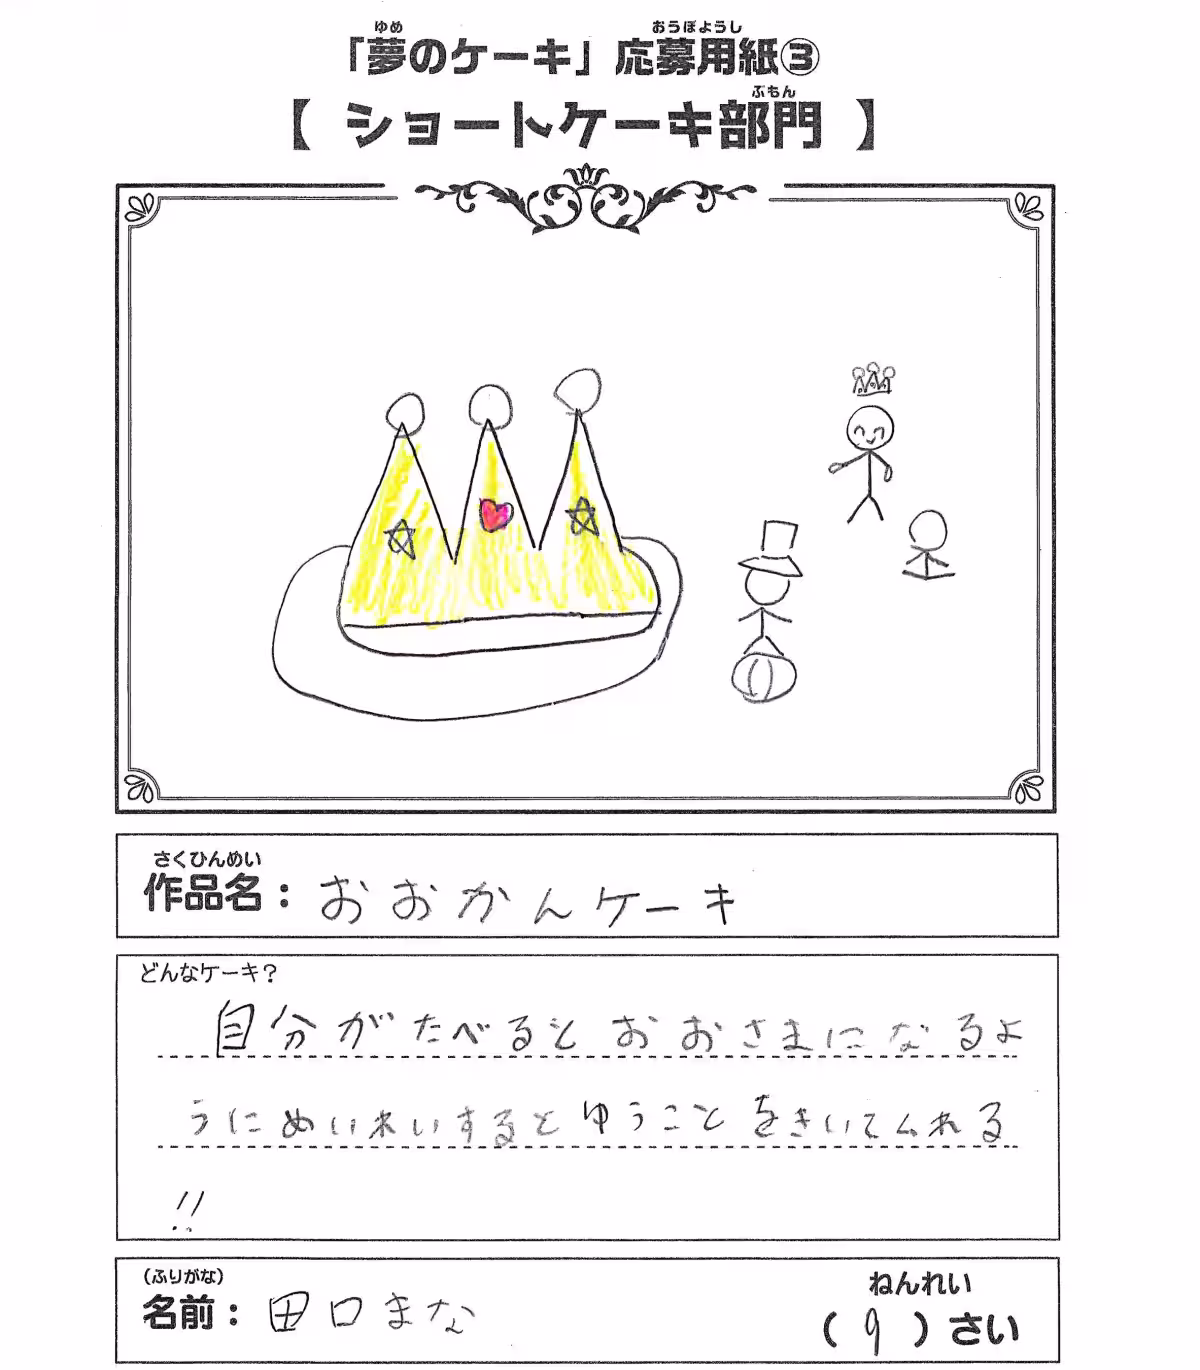 ゆめ おうぼようし
「夢のケーキ」応募用紙③
ぶもん
【 ショートケーキ部門 】
さくひんめい
作品名：おおかんケーキ
どんなケーキ？
自分がたべるとおおさまになるよ
うにめいれいするとゆうことをきいてくれる
!!
（ふりがな） ねんれい
名前：田口まな （9）さい